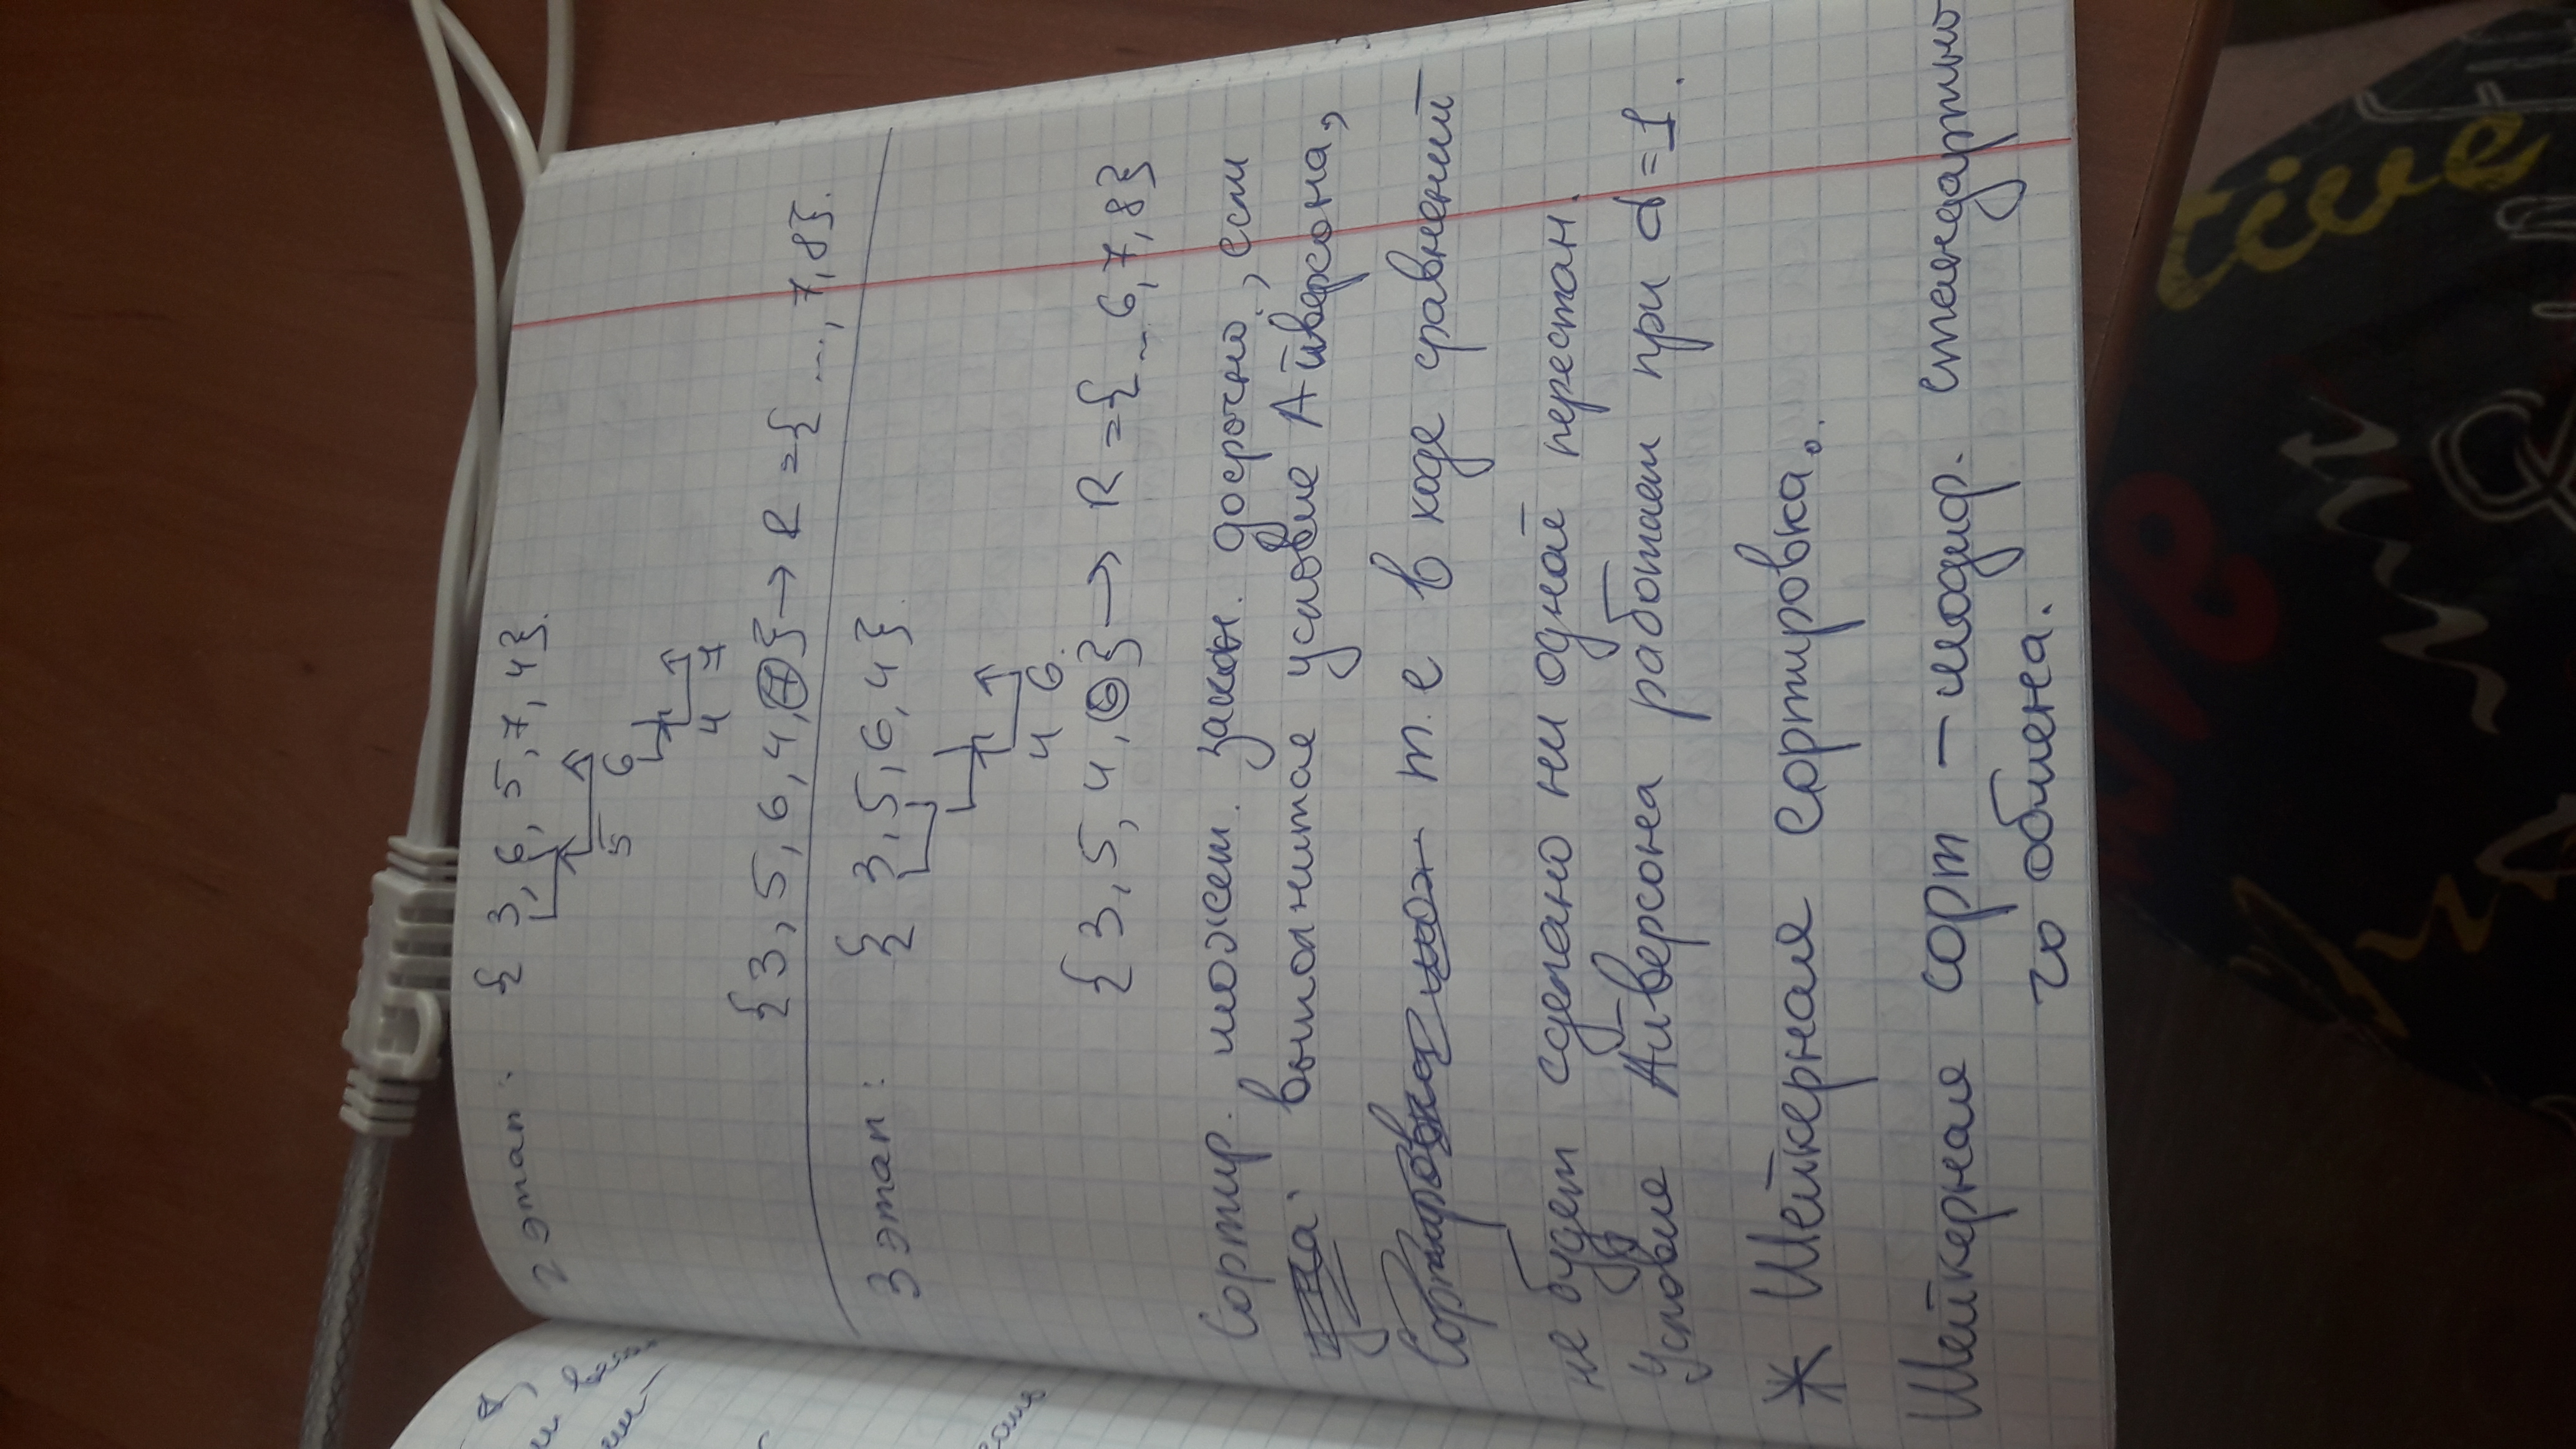 2 этап: { 3, 6, 5, 7, 4}.
5 6
4 7
{3, 5, 6, 4, 7} → R = { ..., 7, 8}.
3 этап: { 3, 5, 6, 4}.
4 6.
{3, 5, 4, 6} → R = { ... 6, 7, 8}
Сортир. может. закон. досрочно., если
выполнитае условие Айверсона,
т.е в ходе сравнений
не будет сделано ни одной перестан.
Условие Айверсона работает при d=1.
* Шейкерная сортировка.
Шейкерная сорт – модиф. стандартно
го обмена.
tive